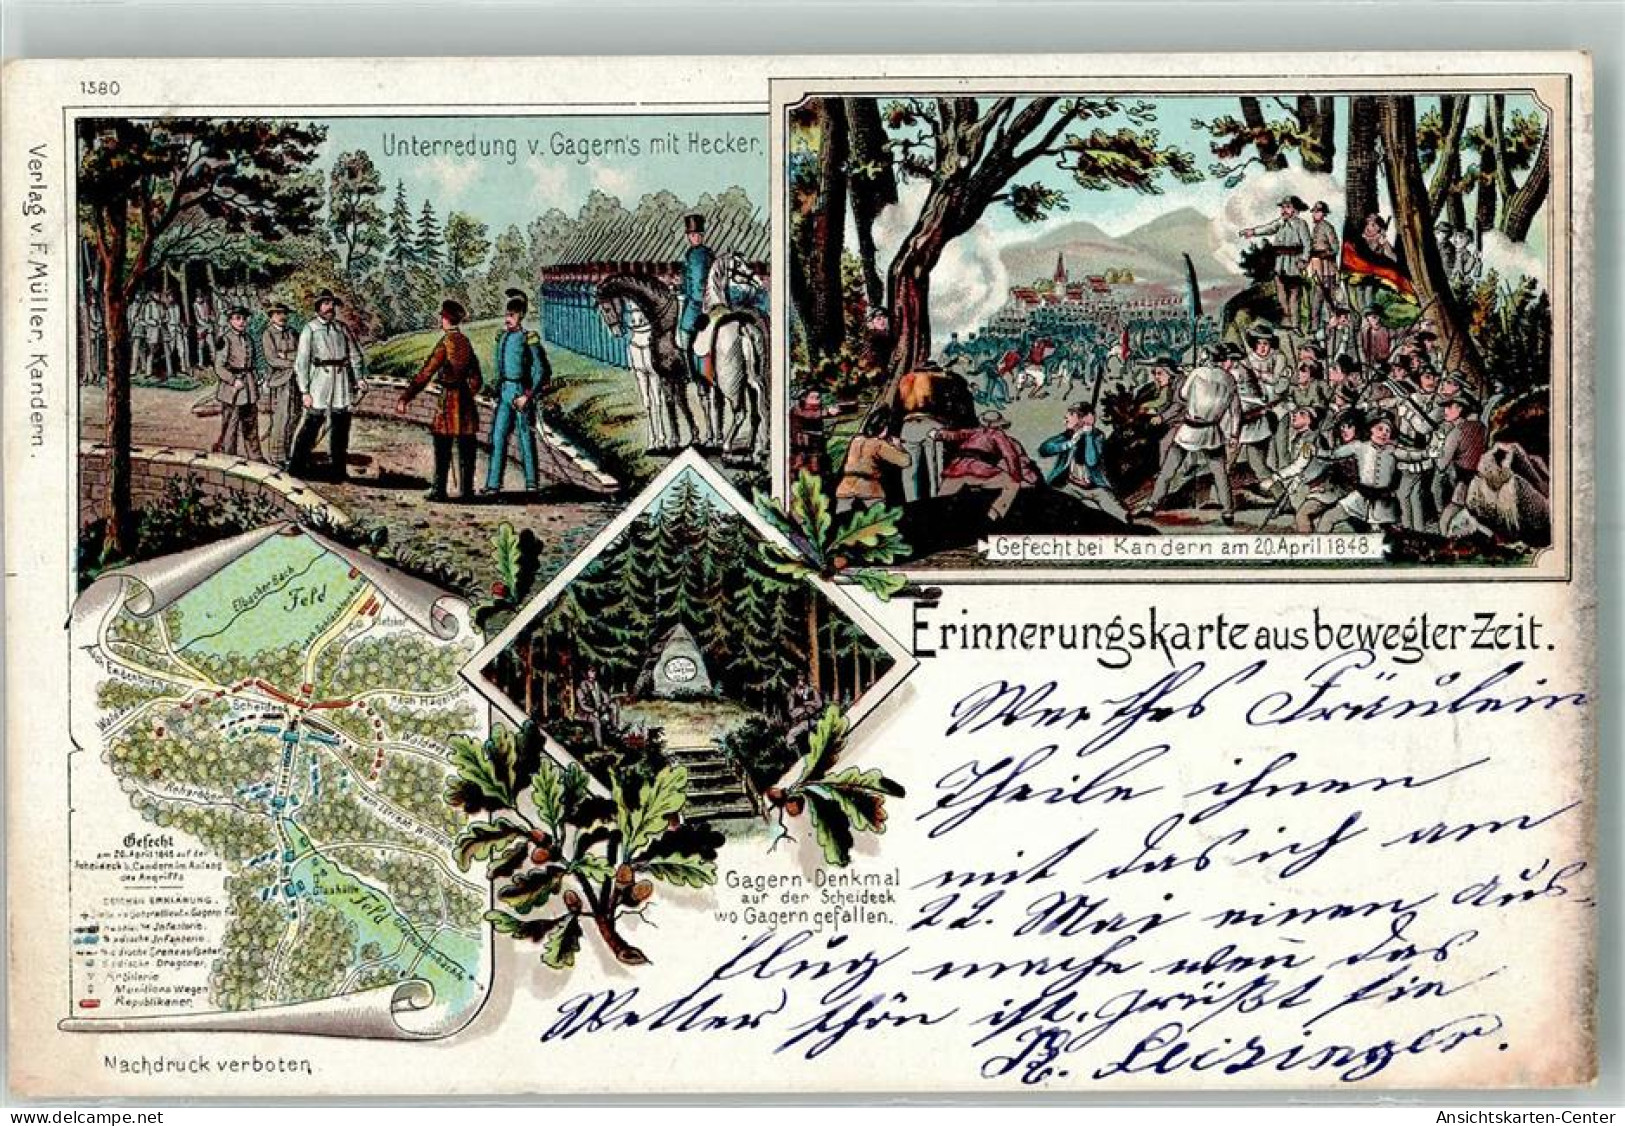 1380
Verlag v. F. Müller, Kandern.
Unterredung v. Gagern's mit Hecker.
Gefecht bei Kandern am 20. April 1848.
Erinnerungskarte aus bewegter Zeit.
Elbacher Bach
Feld
Scheideck
Gefecht
am 20. April 1848 auf der
Scheideck b. Candern im Anfang
des Angriffs
ZEICHEN ERKLÄRUNG.
Hessische Infanterie.
Badische Infanterie.
Badische Dragoner.
Artillerie
Munitions Wegen
Republikaner.
Glashütte
Feld
Gagern-Denkmal
auf der Scheideck
wo Gagern gefallen.
Werthes Fräulein
Theile ihnen
mit das ich am
22. Mai einen Aus-
flug mache wen das
Wetter schön ist. grüßt sie
R. Leisinger.
Nachdruck verboten.
Ansichtskarten-Center